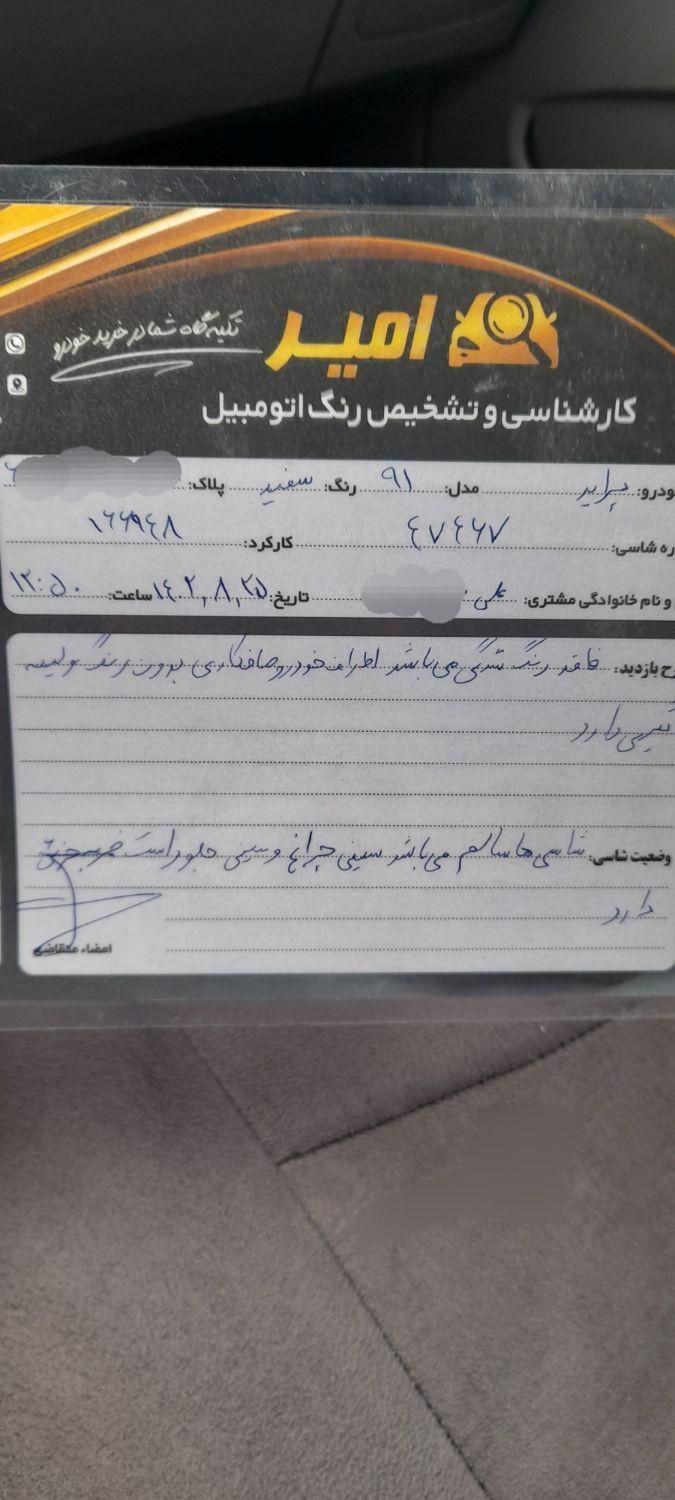 امیر
تکیه‌گاه شما در خرید خودرو
کارشناسی و تشخیص رنگ اتومبیل
ودرو: پراید مدل: ۹۱ رنگ: سفید پلاک:
ره شاسی: ۴۷۴۶۷ کارکرد: ۱۶۶۹۴۸
و نام خانوادگی مشتری: علی تاریخ: ۱۴۰۲,۸,۲۵ ساعت: ۱۲:۵۰
رح بازدید: فاقد رنگ شدگی می‌باشد اطراف خودرو صافکاری بدون رنگ و لیسه
گیری دارد
وضعیت شاسی: شاسی‌ها سالم می‌باشد سینی چراغ و سینی جلو راست ضربه جزئی
دارد
امضاء متقاضی